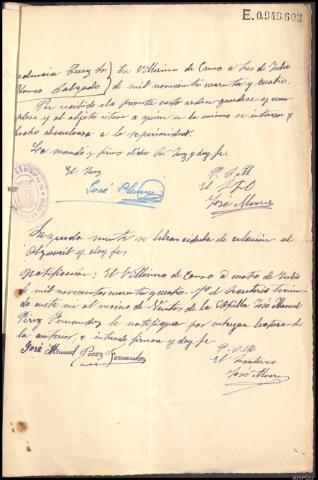 E.0.949.603
En Villarino de Conso a tres de Julio
de mil novecientos cuarenta y cuatro.
Por recibida la presente carta orden guardese y cum
plase y al objeto citese a quien en la misma se interesa y
hecho devuelvase a la superioridad.
Lo mandó y firma dicho Sr. Juez y doy fe.
El Juez
P. S. M
José Blanco
El
José
Seguidamente se libra cédula de citación al
Alguacil y doy fe.
Notificación: En Villarino de Conso a cuatro de Julio
de mil novecientos cuarenta y cuatro. Yo el Secretario tenien
do ante mi al vecino de Ventas de la José Manuel
Pérez Fernandez le notifique por integra lectura
la anterior e firma y doy fe.
José Manuel Perez Fernandez
P. S. M
El Secretario
José